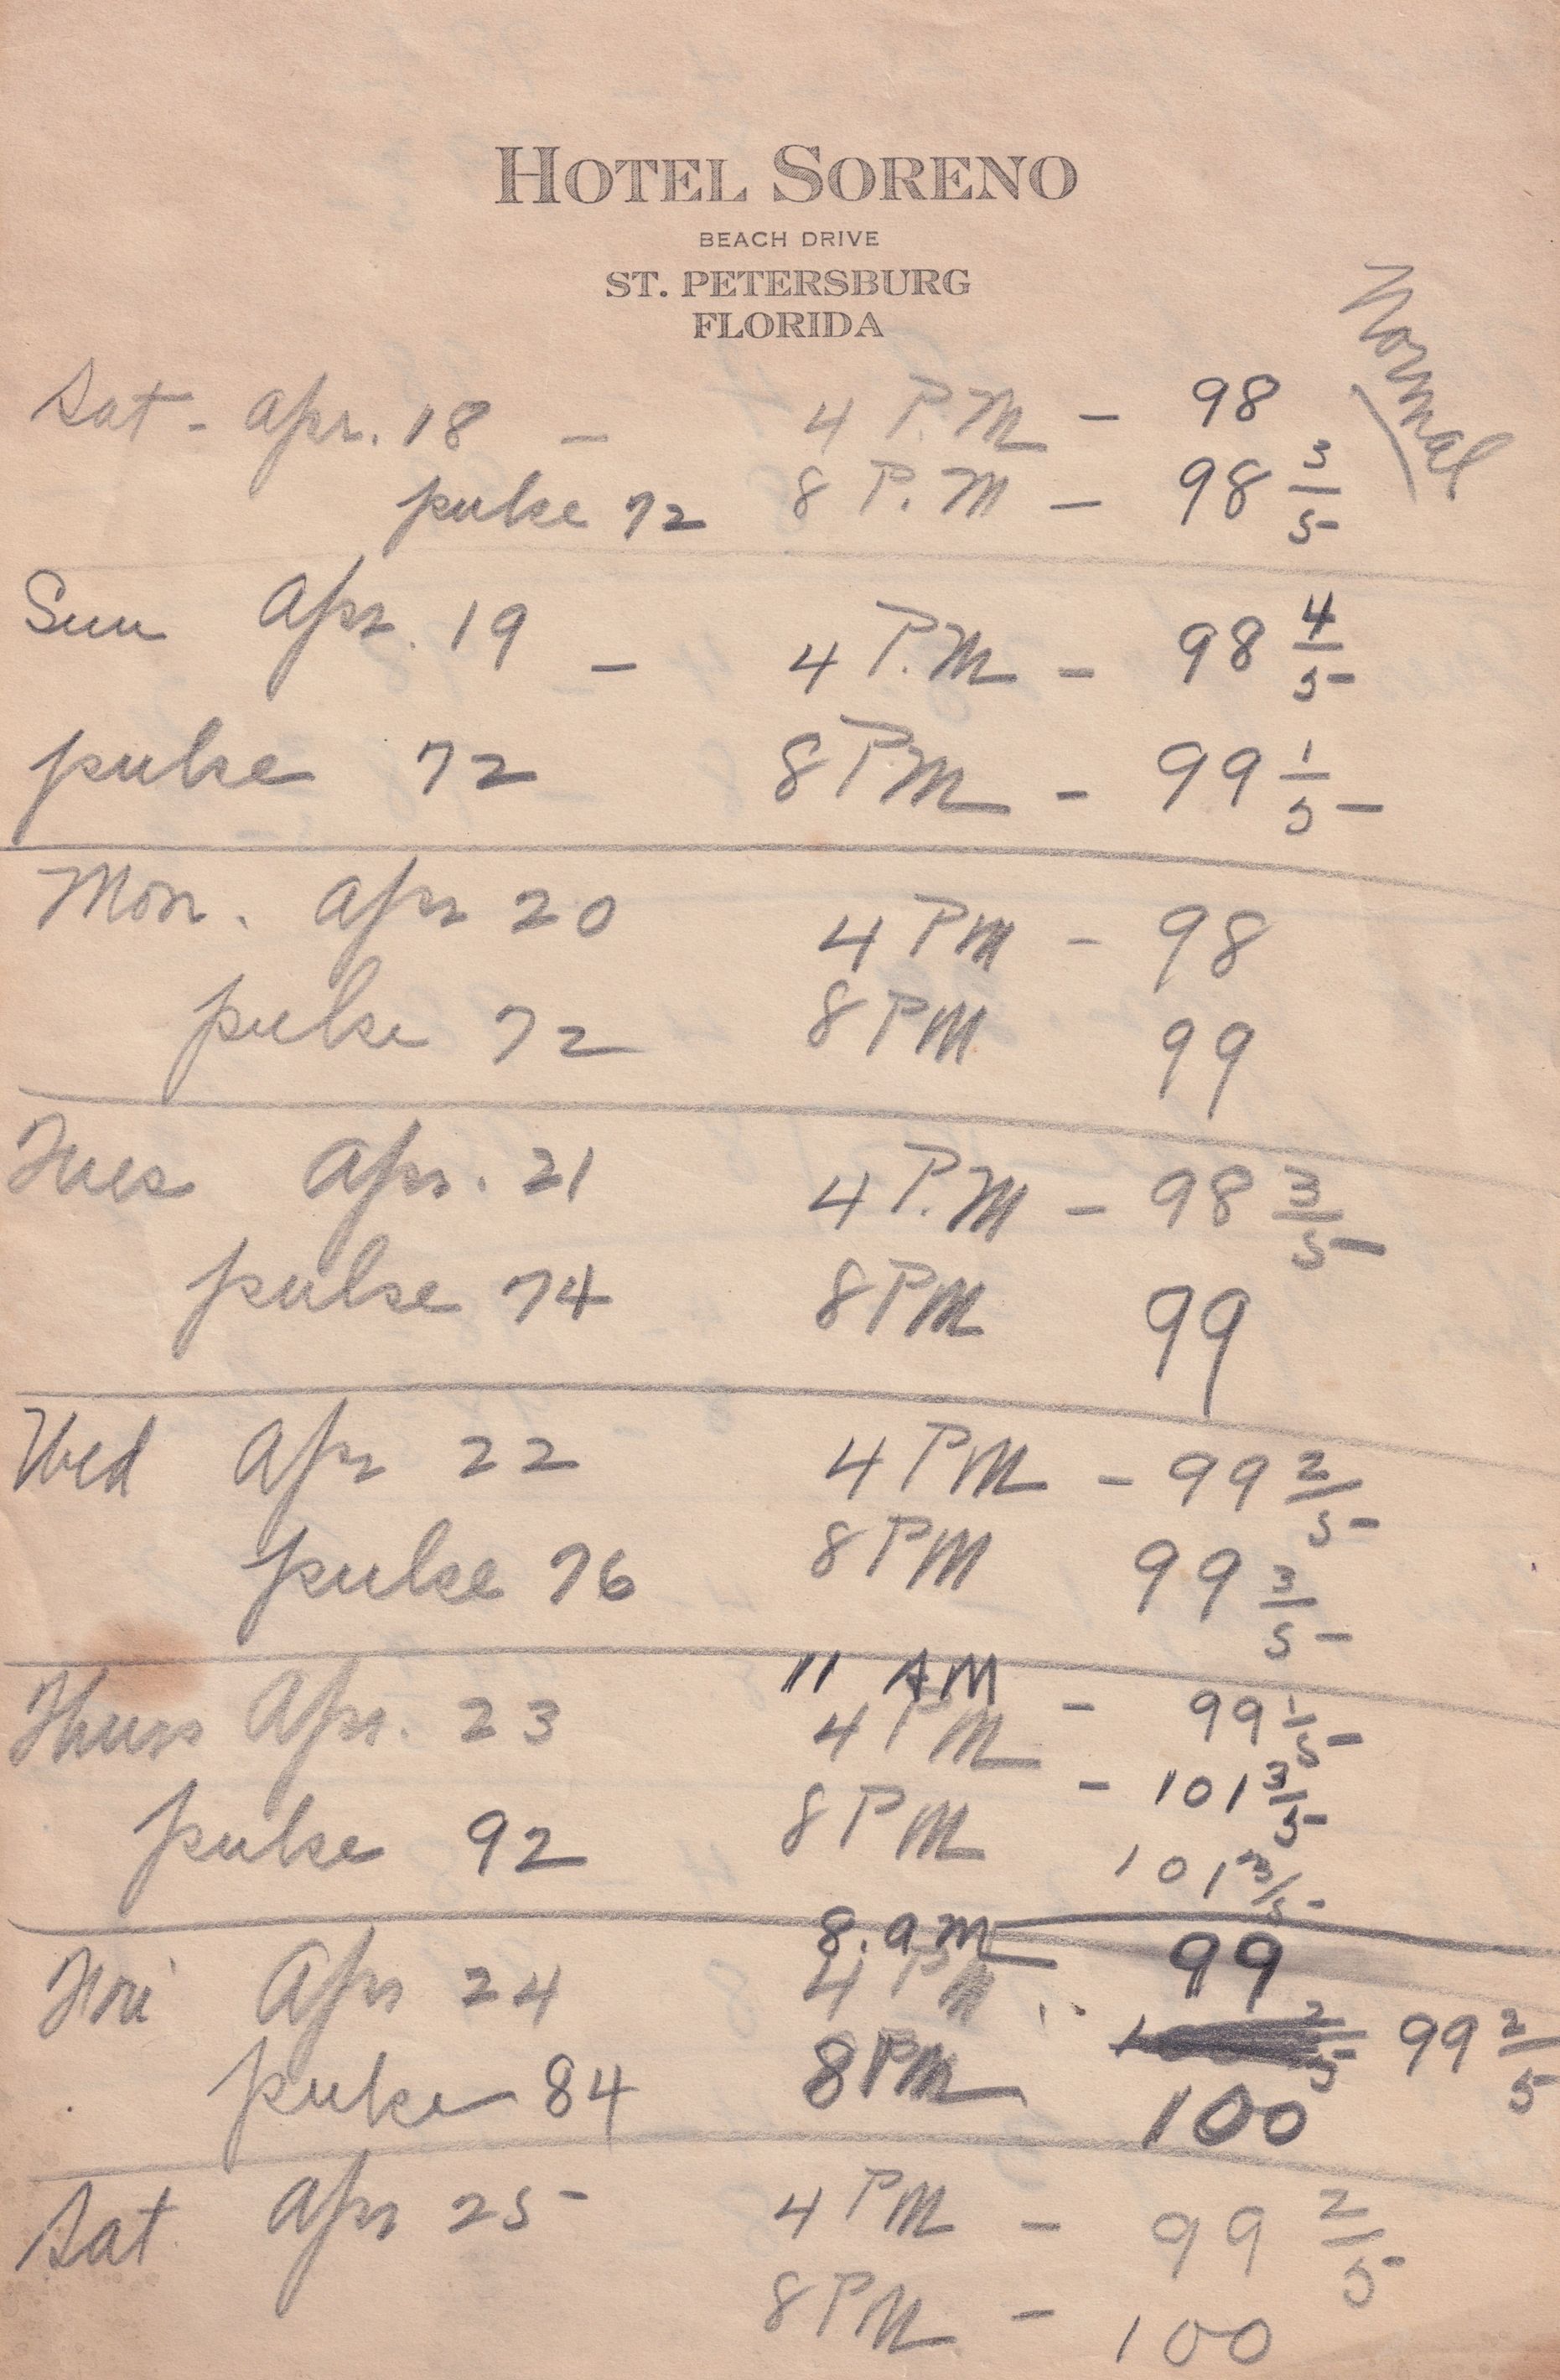 HOTEL SORENO
BEACH DRIVE
ST. PETERSBURG
FLORIDA
Normal
Sat - Apr. 18 - 4 P.M - 98
pulse 72 8 P.M - 98 3/5
Sun Apr. 19 - 4 P.M - 98 4/5
pulse 72 8 PM - 99 1/5
Mon. Apr 20 4 PM - 98
pulse 72 8 PM 99
Tues Apr. 21 4 P.M - 98 3/5
pulse 74 8 PM 99
Wed Apr 22 4 PM - 99 2/5
pulse 76 8 PM 99 3/5
11 AM - 99 1/5
Thurs Apr. 23 4 PM - 101 3/5
pulse 92 8 PM 101 3/5
8. am 99
Fri Apr 24 4 PM 2/5 99 2/5
pulse 84 8 PM 100
Sat Apr 25 4 PM - 99 2/5
8 PM - 100